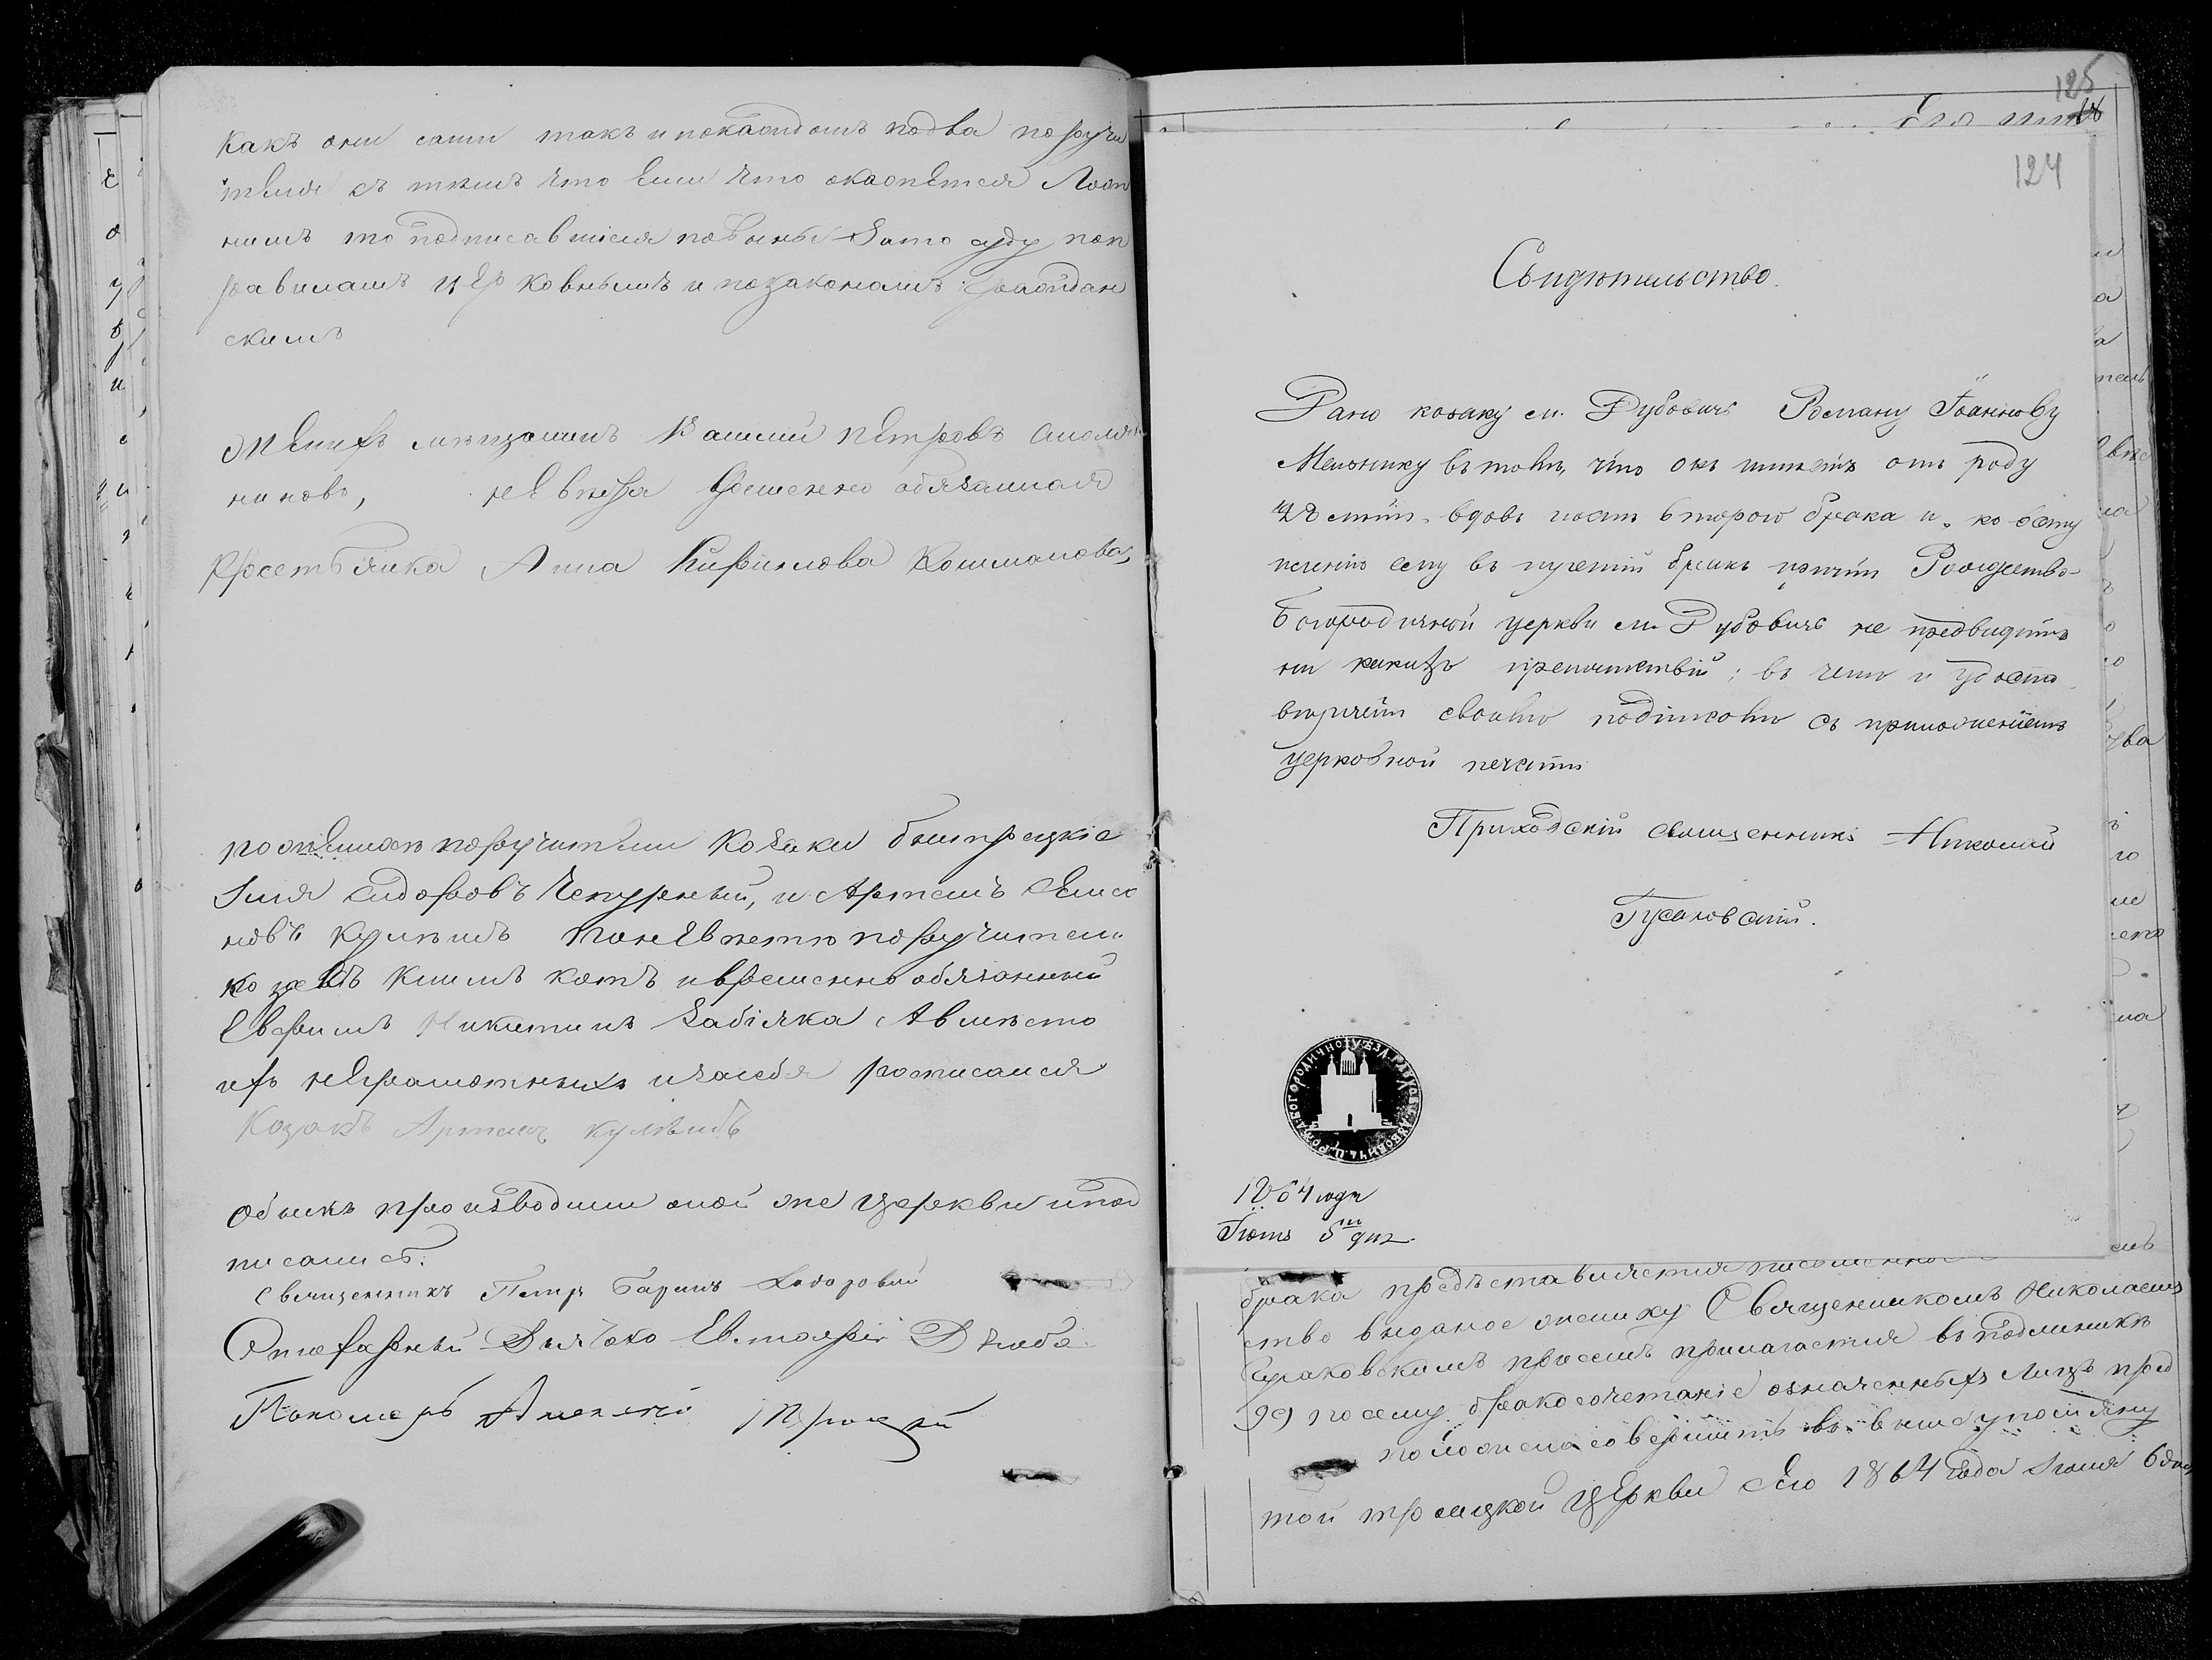 какъ они сами такъ и по каждомъ по два поручи
теля съ темъ что Если что окажется Лож
нимъ то подписавшіеся повины зато суду поп
равиламъ церковнымъ и по законамъ Граждан
скимъ
Женихъ мещанинъ Василій Петровъ
новъ, невеста временно обязанная
крестьянка Анна Кирилова Кошманова,
по женихе поручители козаки быстрецкіе
Илія Сидоровъ Чепурный, и Артемъ Семе
новъ Кулешъ по невесте поручители
козакъ Климъ Котъ и временно обязанный
Евфимъ Никитинъ Забіяка А вместо
ихъ неграмотныхъ и за себя росписался
Козакъ Артемъ Кулешъ
обыскъ производили оной же церкви и под
писались:
Священникъ Петръ
Дьячокъ Евстафій Дзюба
Пономарь Троцкій
125
124
Свидѣтельство.
Дано козаку м. Дубовичъ Роману Іоаннову
Мельнику въ томъ, что онъ имѣетъ отъ роду
42 лѣтъ, вдовъ послѣ втораго брака и ко всту
пленію ему въ третій бракъ причтъ Рождество-
Богородичной церкви м. Дубовичъ не предвидитъ
ни какихъ препятствій; въ чемъ и удосто
вѣряетъ своимъ подписомъ съ приложеніемъ
церковной печати
Приходскій священникъ Николай
Гусаковскій.
1864 года
Іюня 5го дня.
брака предъставляется письменное
ство выданое жениху Священникомъ Николаемъ
Гусаковскимъ при семъ прилагается въ подлиннике
9е) по сему бракосочетаніе означенныхъ лицъ пред
положена совершить въ выше упомяну
той троицкой церкви Сего 1864 года Іюня 6 дня